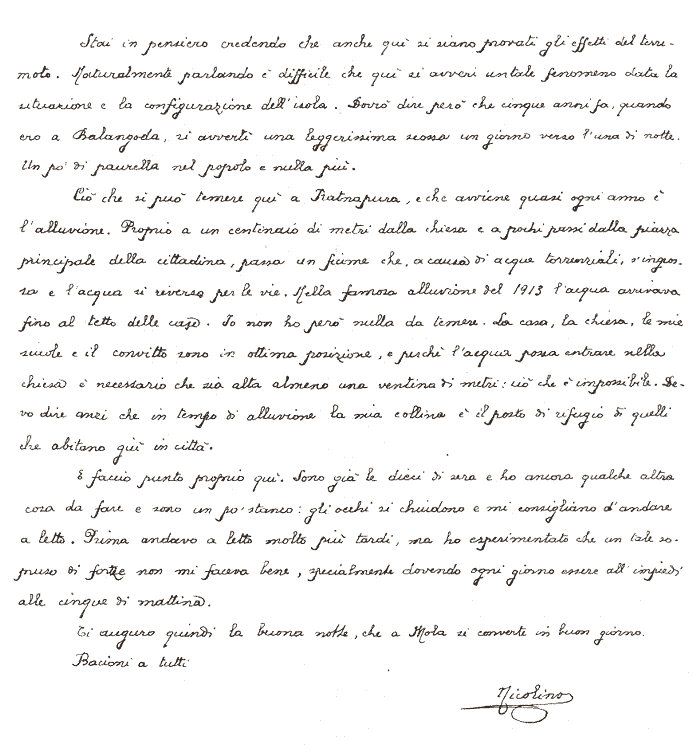 Stai in pensiero credendo che anche quì si siano provati gli effetti del terre-
moto. Naturalmente parlando è difficile che quì si avveri un tale fenomeno data la
situazione e la configurazione dell'isola. Dovrò dire però che cinque anni fa, quando
ero a Balangoda, si avvertì una leggerissima scossa un giorno verso l'una di notte.
Un po' di paurella nel popolo e nulla più.
Ciò che si può temere quì a Ratnapura, e che avviene quasi ogni anno è
l'alluvione. Proprio a un centinaio di metri dalla chiesa e a pochi passi dalla piazza
principale della cittadina, passa un fiume che, a causa di acque torrenziali, s'ingros-
sa e l'acqua si riversa per le vie. Nella famosa alluvione del 1913 l'acqua arrivava
fino al tetto delle case. Io non ho però nulla da temere. La casa, la chiesa, le mie
scuole e il convitto sono in ottima posizione, e perchè l'acqua possa entrare nella
chiesa è necessario che sia alta almeno una ventina di metri: ciò che è impossibile. De-
vo dire anzi che in tempo di alluvione la mia collina è il posto di rifugio di quelli
che abitano giù in città.
E faccio punto proprio quì. Sono già le dieci di sera e ho ancora qualche altra
cosa da fare e sono un po' stanco: gli occhi si chiudono e mi consigliano d'andare
a letto. Prima andavo a letto molto più tardi, ma ho esperimentato che un tale so-
pruso di forze non mi faceva bene, specialmente dovendo ogni giorno essere all'impiedi
alle cinque di mattina.
Ti auguro quindi la buona notte, che a Mola si converte in buon giorno.
Bacioni a tutti
Nicolino